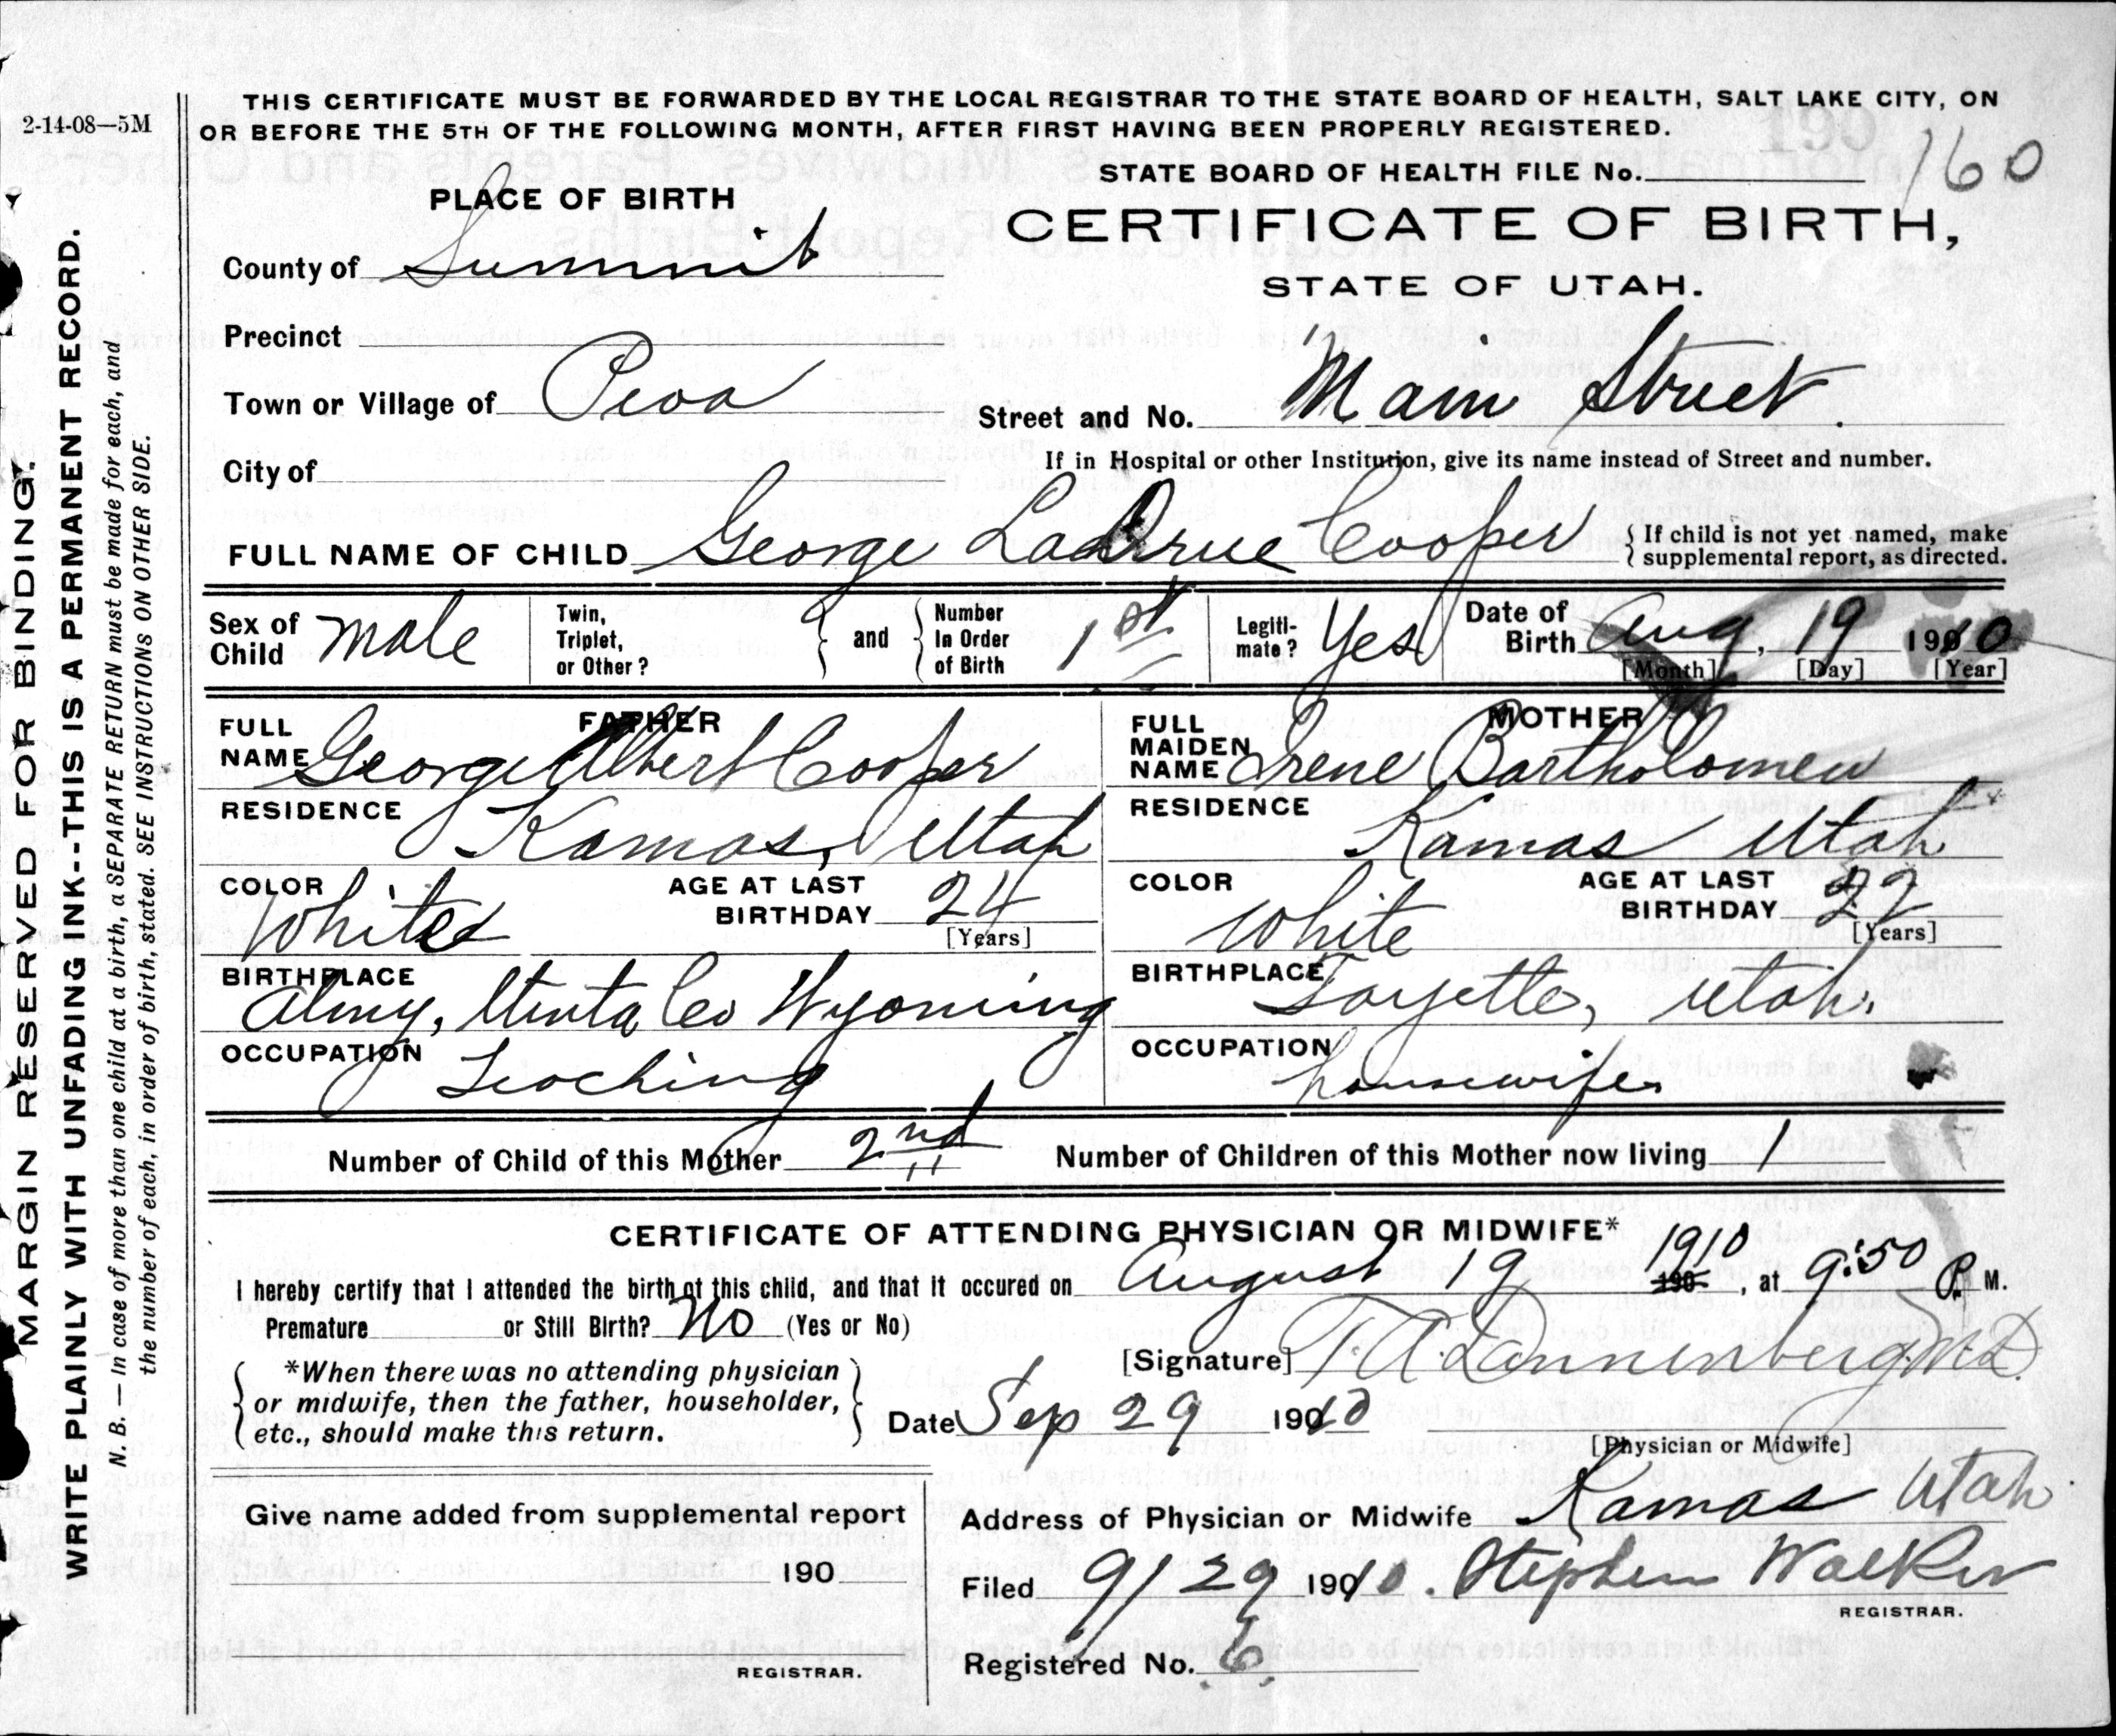 THIS CERTIFICATE MUST BE FORWARDED BY THE LOCAL REGISTRAR TO THE STATE BOARD OF HEALTH, SALT LAKE CITY, ON
2-14-08—5M
OR BEFORE THE 5TH OF THE FOLLOWING MONTH, AFTER FIRST HAVING BEEN PROPERLY REGISTERED.
STATE BOARD OF HEALTH FILE No. 160
PLACE OF BIRTH
CERTIFICATE OF BIRTH,
County of Summit
STATE OF UTAH.
Precinct
Town or Village of Peoa
Street and No. Main Street.
City of
If in Hospital or other Institution, give its name instead of Street and number.
FULL NAME OF CHILD George Cooper
If child is not yet named, make supplemental report, as directed.
Sex of Child male
Twin, Triplet, or Other?
and
Number In Order of Birth 1st
Legiti-mate? Yes
Date of Birth Aug, 19 1910
[Month] [Day] [Year]
FATHER
FULL NAME George Albert Cooper
RESIDENCE Kamas, Utah
COLOR White
AGE AT LAST BIRTHDAY 24
[Years]
BIRTHPLACE Almy, Uinta Co Wyoming
OCCUPATION Teaching
MOTHER
FULL MAIDEN NAME Irene Bartholomew
RESIDENCE Kamas Utah
COLOR White
AGE AT LAST BIRTHDAY 22
[Years]
BIRTHPLACE Fayette, Utah.
OCCUPATION housewife
Number of Child of this Mother 2nd
Number of Children of this Mother now living 1
CERTIFICATE OF ATTENDING PHYSICIAN OR MIDWIFE*
I hereby certify that I attended the birth of this child, and that it occured on August 19 1910 190 , at 9:50 P. M.
Premature or Still Birth? No (Yes or No)
*When there was no attending physician
or midwife, then the father, householder,
etc., should make this return.
[Signature] T. A. Dannenberg M.D.
Date Sep 29 1910
[Physician or Midwife]
Give name added from supplemental report
190
REGISTRAR.
Address of Physician or Midwife Kamas Utah
Filed 9/29 1910. Stephen Walker
REGISTRAR.
Registered No. 6
MARGIN RESERVED FOR BINDING.
WRITE PLAINLY WITH UNFADING INK--THIS IS A PERMANENT RECORD.
N. B. — In case of more than one child at a birth, a SEPARATE RETURN must be made for each, and
the number of each, in order of birth, stated. SEE INSTRUCTIONS ON OTHER SIDE.